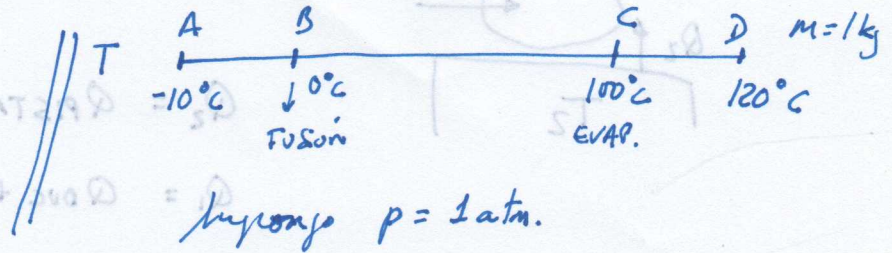 A B C D m=1kg
T
-10°C 0°C 100°C 120°C
FUSIÓN EVAP.
Supongo p = 1 atm.
Q₂ =
Q₁ =